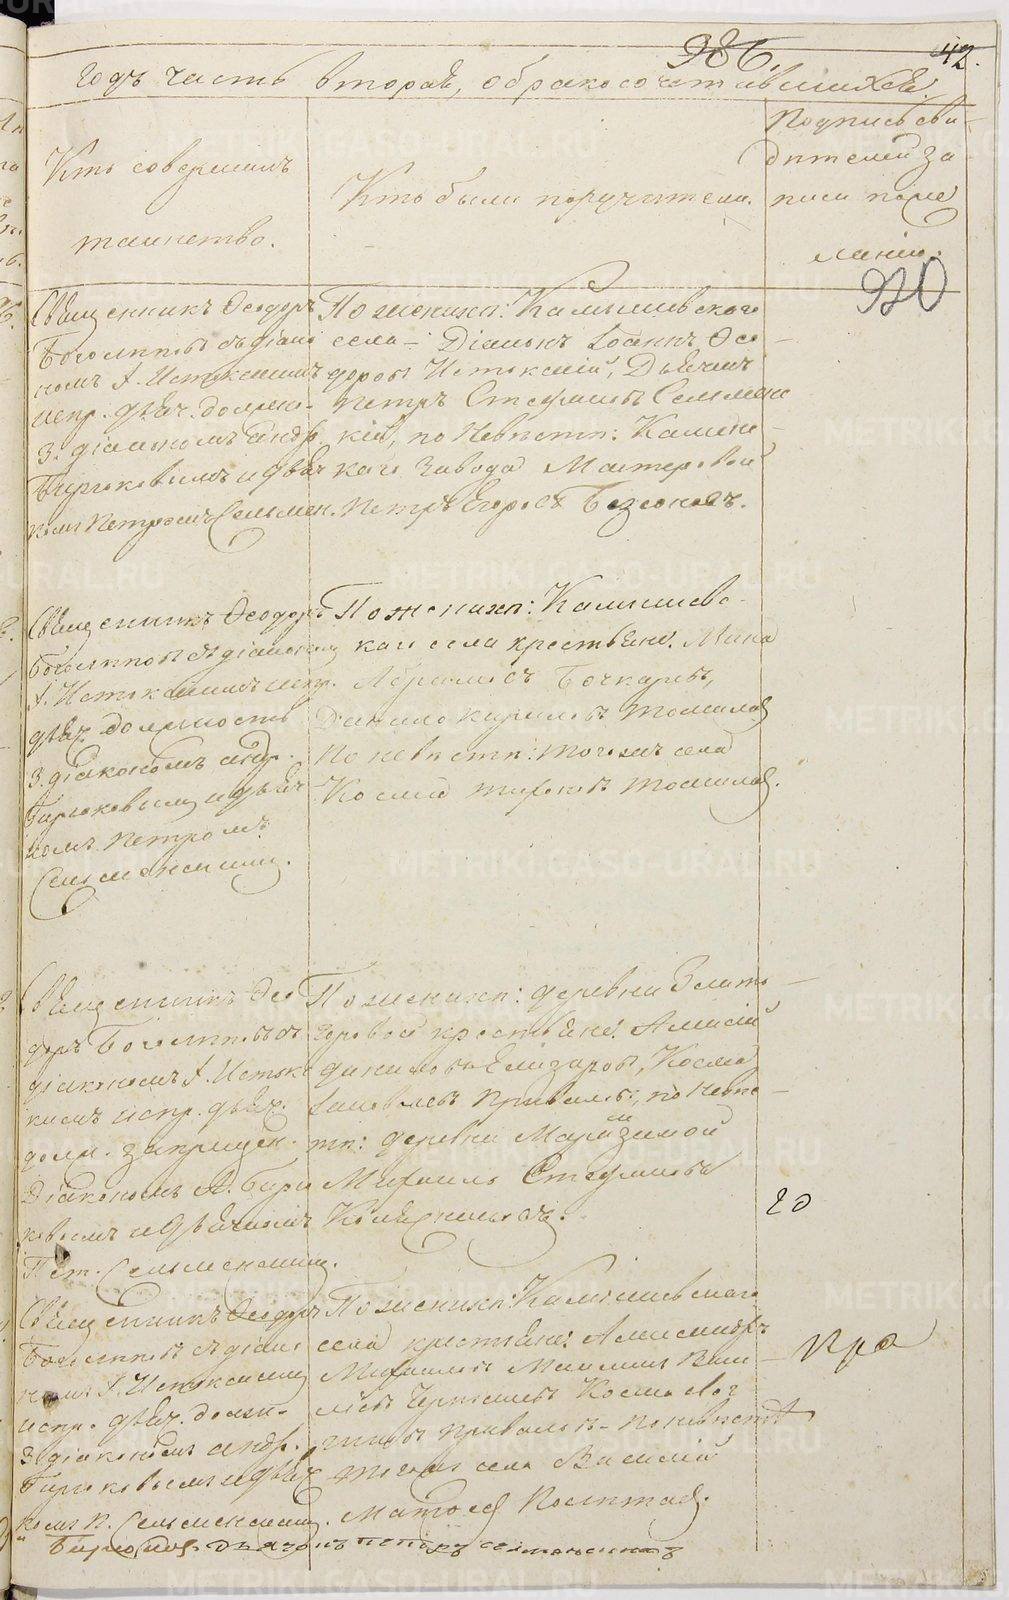 986.
42.
годъ часть вторая, о бракосочетавшихся.
Кто совершалъ
таинство.
Кто были поручители.
Подпись сви-
дителей за
писи поже
ланію.
920
Священникъ Ѳеодоръ
Боголѣповъ съ діако
номъ І. Истокскимъ
испр. дьяч. должно.
З. діакономъ Андр.
Бирюковымъ и дьяч
комъ Петромъ Сельмен.
По женихѣ: Камышевскаго
села - Діаконъ Іоаннъ Ѳео-
доровъ Истокскій, Дьячекъ
Петръ Стефановъ Сельменс
кій, по Невѣстѣ: Каменс-
каго Завода Мастеровой
Петръ Егоровъ
Священникъ Ѳеодоръ
Боголѣповъ съ діакономъ
І. Истокскимъ испр.
дьяч. должность
З. діакономъ Андр.
Бирюковымъ и дьяч
комъ Петромъ
Сельменскимъ.
По женихѣ: Камышевс-
каго села крестьяне:
Абрамовъ Бочкаревъ,
Данило Кириловъ Томиловъ
По невѣстѣ: тогожъ села
Косма Томиловъ.
Священникъ Ѳео
доръ Боголѣповъ съ
діакономъ І. Истокс
кимъ испр. дьяч.
долж. запрещен.
Діакономъ А. Бирю
ковымъ и дьячкомъ
Пет. Сельменскимъ.
По женихѣ: деревни Злато-
горовой крестьяне: Алексій
Даниловъ Елизаровъ, Косма
Іаковлевъ Приваловъ, по Невѣс-
тѣ: деревни
Михаилъ Стефановъ
Колясниковъ.
Священникъ Ѳеодоръ
Боголѣповъ съ діако
номъ І. Истокскимъ
испр. дьяч. долж.
З. діакономъ Андр.
Бирюковымъ и дьяч
комъ П. Сельменскимъ.
По женихѣ: Камышевскаго
села крестьяне: Александръ
Михаиловъ Васи-
льевъ Косма Лог
гиновъ Приваловъ - По невѣстѣ
тогожъ села Василій
Бирюковъ дьячокъ петръ селменский